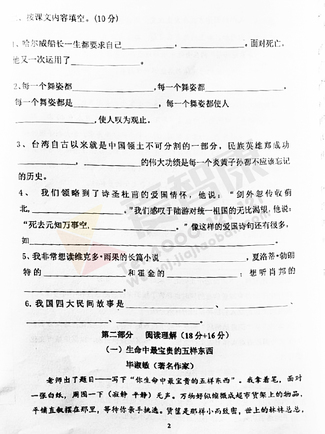 、按课文内容填空。(10分)
1、哈尔威船长一生都要求自己________，面对死亡，
他又一次运用了________。
2、每一个舞姿都________，每一个舞姿都________，
每一个舞姿都是________，每一个舞姿都使人
________，使人叹为观止。
3、台湾自古以来就是中国领土不可分割的一部分，民族英雄郑成功
________，________的伟大功绩是每一个炎黄子孙都不应该忘记
的历史。
4、我们领略到了诗圣杜甫的爱国情怀，他说：“剑外忽传收蓟
北，________。”我们感叹于陆游对统一祖国的无比渴望，他说：
“死去元知万事空，________。”像这样的爱国诗句还有很多，
如________，________。
5、我非常想读维克多·雨果的长篇小说________，夏洛蒂·勃朗
特的________和霍金的________；想听肖邦的
________。
6、我国四大民间故事是________、________、
________、________。
第二部分 阅读理解(18分+16分)
(一)生命中最宝贵的五样东西
毕淑敏(著名作家)
老师出了题目——写下“你生命中最宝贵的五样东西”。我拿着笔，面对
一张白纸，周围一下(寂静 平静)无声。万物好似缩微成超市货架上的物品，
平铺直叙摆在那里，等待你亲手挑选。货筐是那样小而致密，世上的林林总总，
2